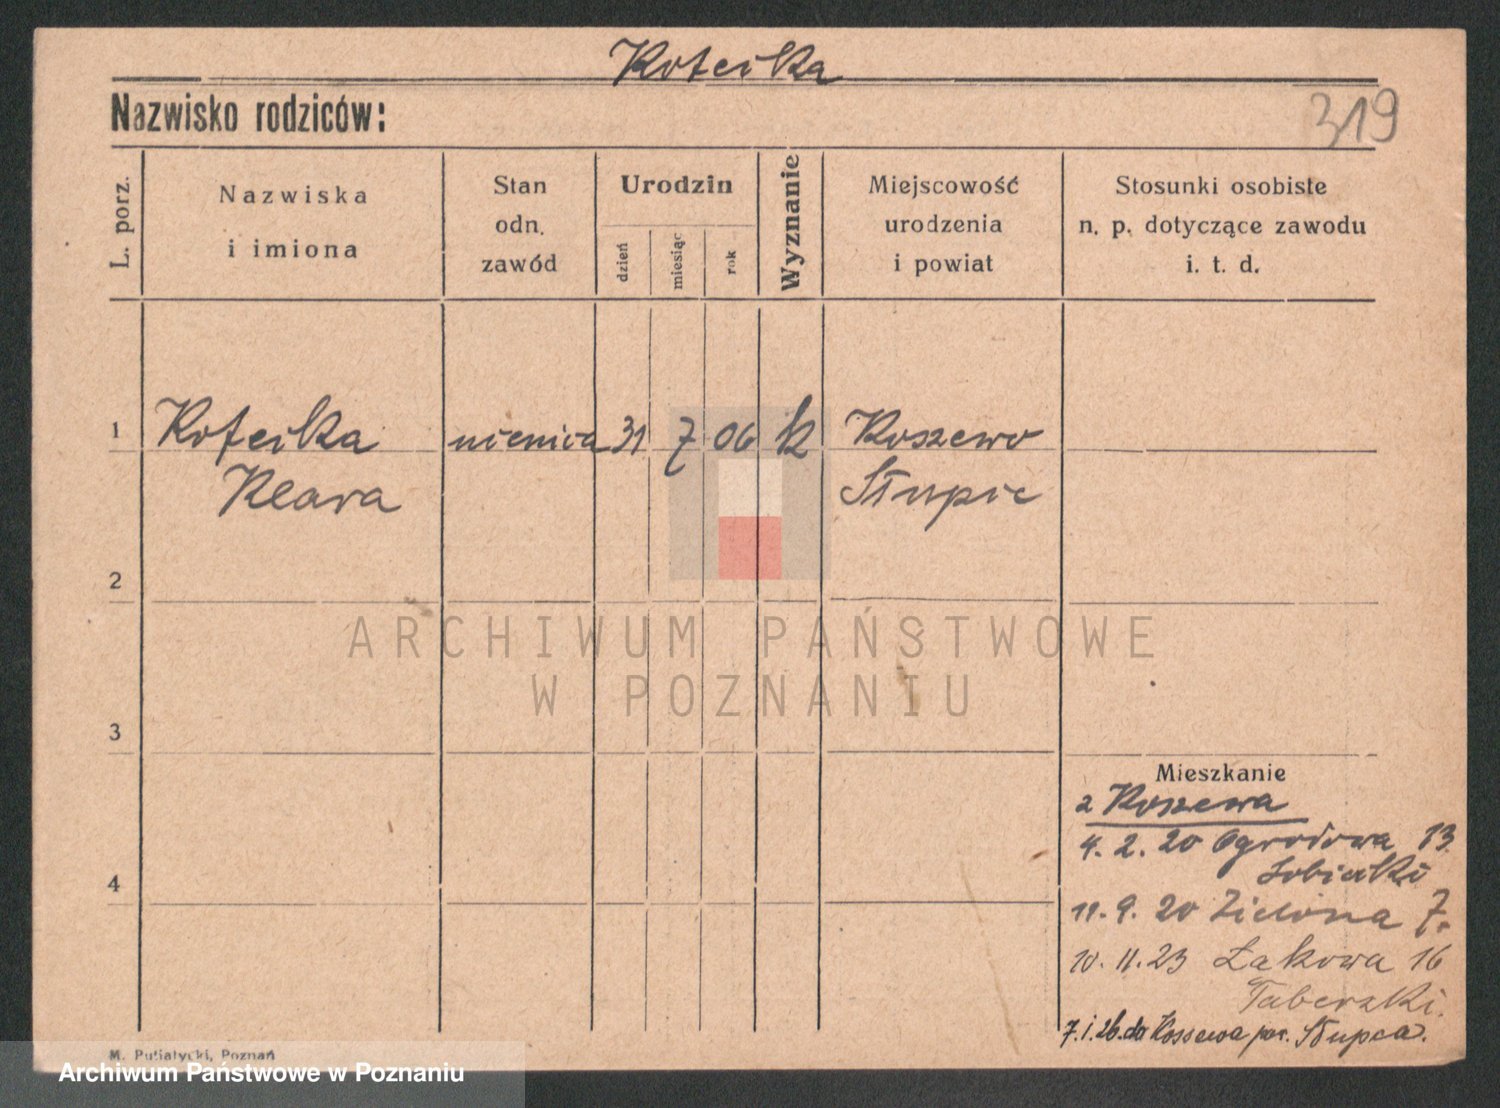 Koteika
Nazwisko rodziców:
319
L. porz.
Nazwiska
i imiona
Stan
odn.
zawód
Urodzin
dzień
miesiąc
rok
Wyznanie
Miejscowość
urodzenia
i powiat
Stosunki osobiste
n. p. dotyczące zawodu
i. t. d.
1 Koteika 31 7 06 k Koszewo
Klara
2
3
4
Mieszkanie
z Koszewa
4. 2. 20 Ogrodowa 13.
11. 9. 20 Zielona 7.
10. 11. 23 Łąkowa 16
Taberski.
7. 1. 26. do Kossewa pow. Słupca.
M. Putiatycki, Poznań
ARCHIWUM PAŃSTWOWE
W POZNANIU
Archiwum Państwowe w Poznaniu